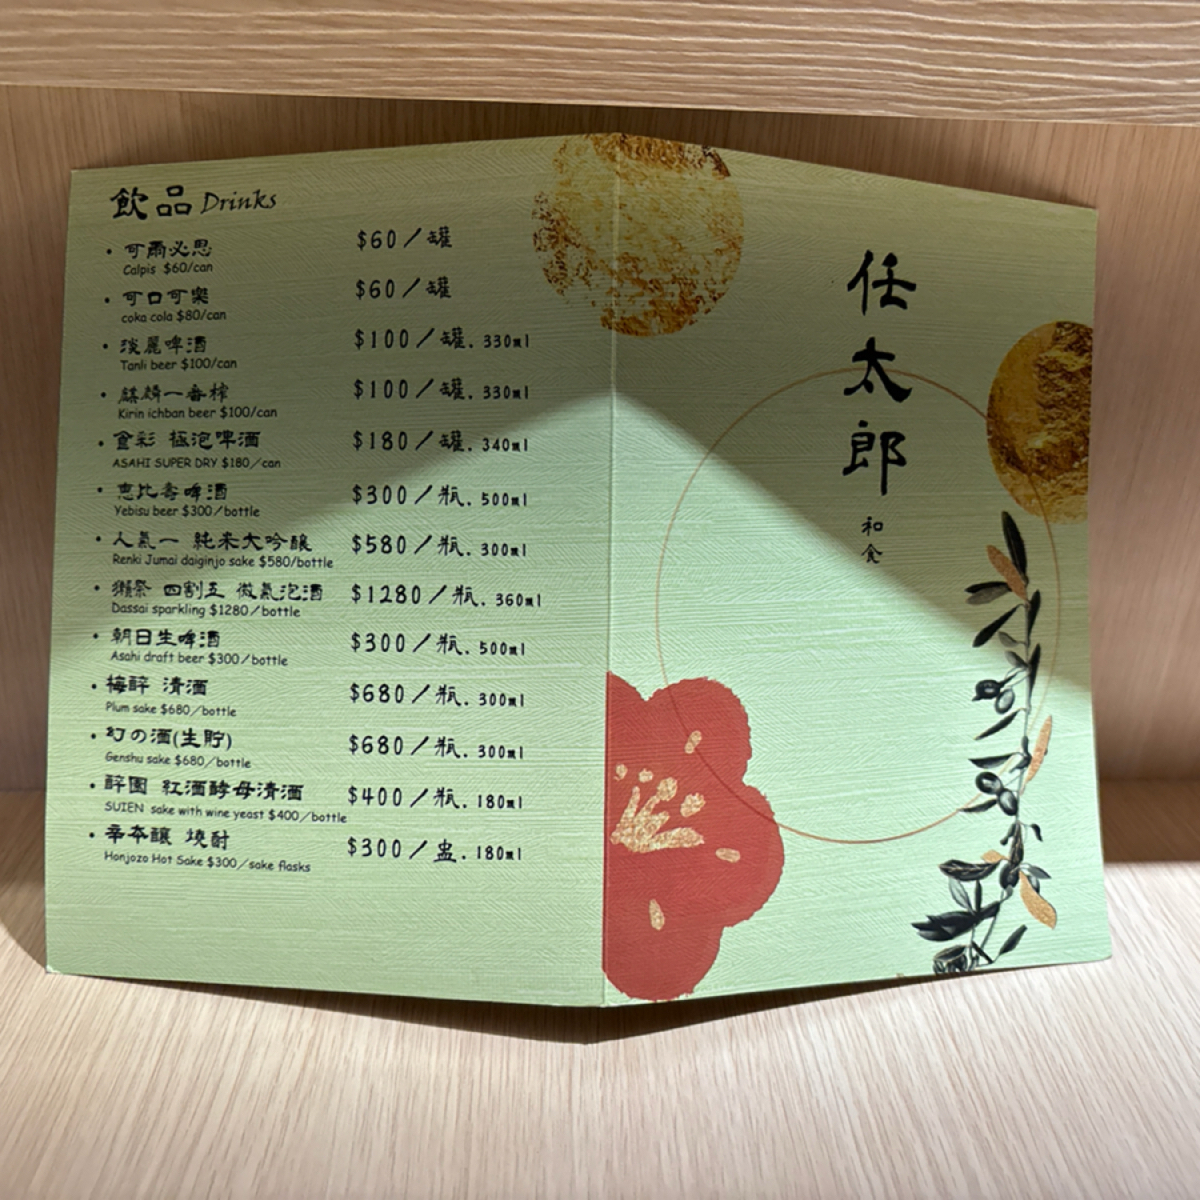 飲品 Drinks
• 可爾必思 $60/罐
Calpis $60/can
• 可口可樂 $60/罐
coka cola $80/can
• 淡麗啤酒 $100/罐. 330ml
Tanli beer $100/can
• 麒麟一番榨 $100/罐. 330ml
Kirin ichban beer $100/can
• 食彩 極泡啤酒 $180/罐. 340ml
ASAHI SUPER DRY $180/can
• 恵比壽啤酒 $300/瓶. 500ml
Yebisu beer $300/bottle
• 人氣一 純米大吟釀 $580/瓶. 300ml
Renki Jumai daiginjo sake $580/bottle
• 獺祭 四割五 微氣泡酒 $1280/瓶. 360ml
Dassai sparkling $1280/bottle
• 朝日生啤酒 $300/瓶. 500ml
Asahi draft beer $300/bottle
• 梅醉 清酒 $680/瓶. 300ml
Plum sake $680/bottle
• 幻の酒(生貯) $680/瓶. 300ml
Genshu sake $680/bottle
• 醉園 紅酒酵母清酒 $400/瓶. 180ml
SUIEN sake with wine yeast $400/bottle
• 辛本釀 燒酎 $300/盅. 180ml
Honjozo Hot Sake $300/sake flasks
任太郎
和食